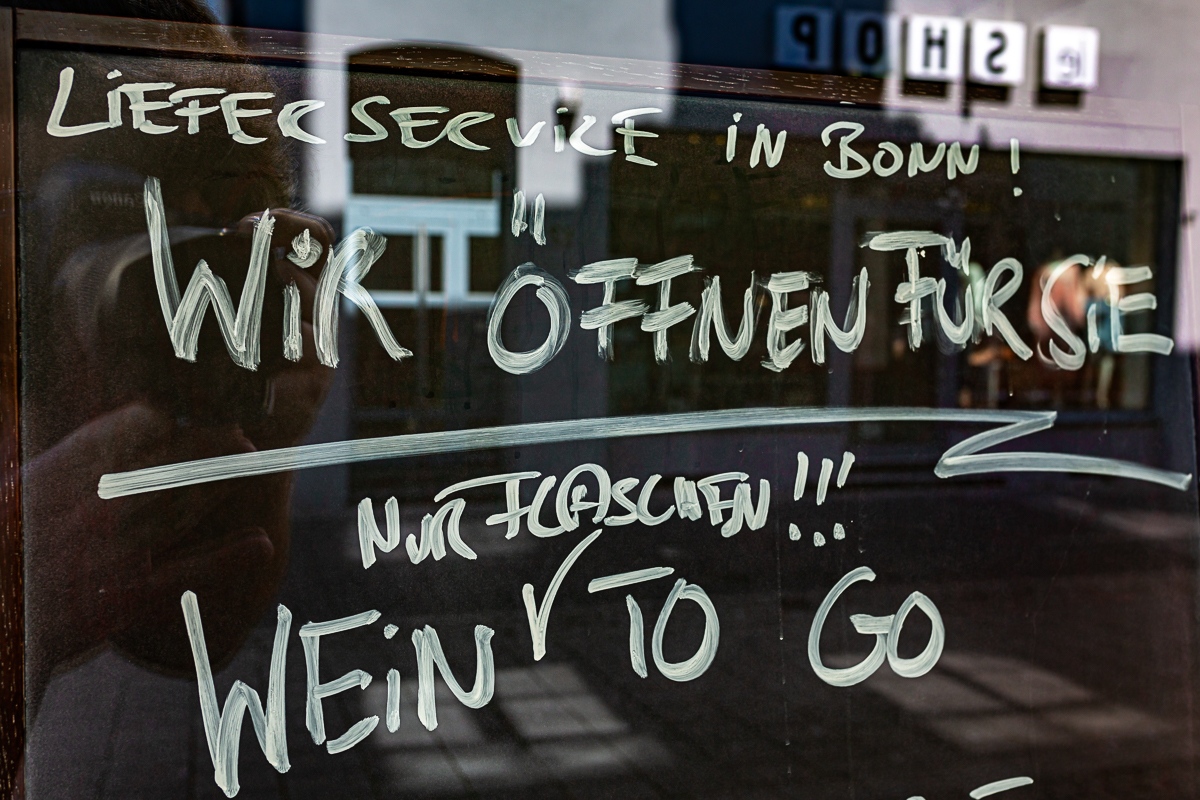 ie SHOP
LIEFERSERVICE IN BONN!
WIR ÖFFNEN FÜR SIE
NUR FLASCHEN!!!
WEIN TO GO